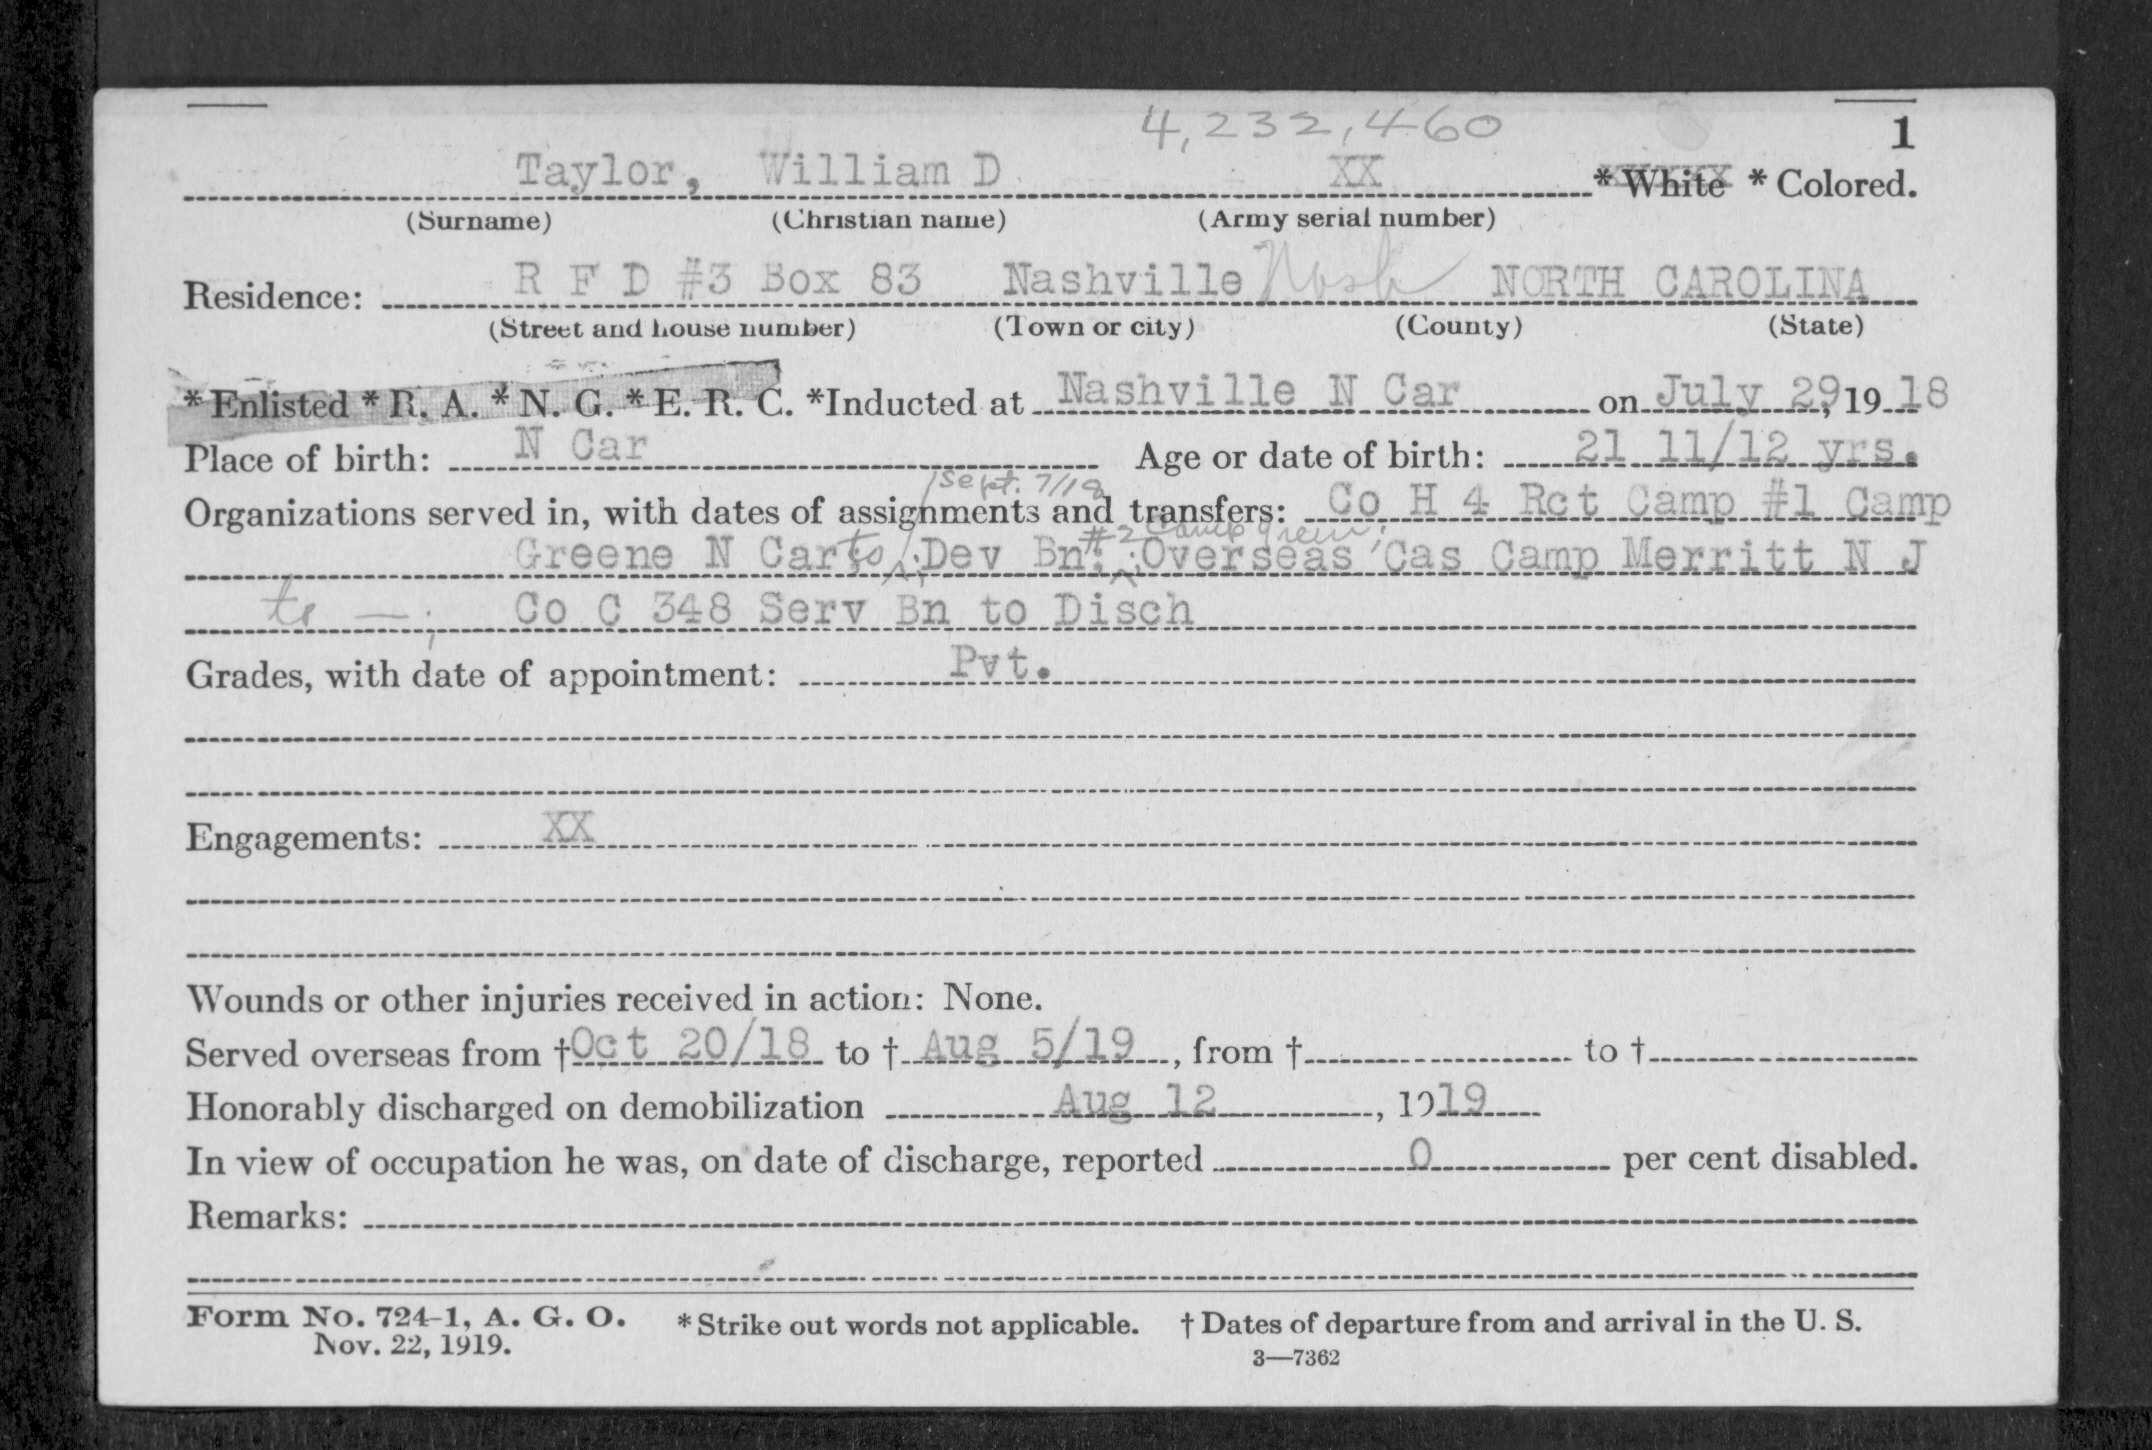 4,232,460
1
Taylor, William D XX * White * Colored.
(Surname) (Christian name) (Army serial number)
Residence: R F D #3 Box 83 Nashville Nash NORTH CAROLINA
(Street and house number) (Town or city) (County) (State)
* Enlisted * R. A. * N. G. * E. R. C. *Inducted at Nashville N Car on July 29, 19 18
Place of birth: N Car Age or date of birth: 21 11/12 yrs.
Sept. 7/18
Organizations served in, with dates of assignments and transfers: Co H 4 Rct Camp #1 Camp
#2 Camp Green
Greene N Car to ; Dev Bn ; Overseas Cas Camp Merritt N J
to — ; Co C 348 Serv Bn to Disch
Grades, with date of appointment: Pvt.
Engagements: XX
Wounds or other injuries received in action: None.
Served overseas from † Oct 20/18 to † Aug 5/19, from † to †
Honorably discharged on demobilization Aug 12, 1919
In view of occupation he was, on date of discharge, reported 0 per cent disabled.
Remarks:
Form No. 724-1, A. G. O. * Strike out words not applicable. † Dates of departure from and arrival in the U. S.
Nov. 22, 1919. 3—7362